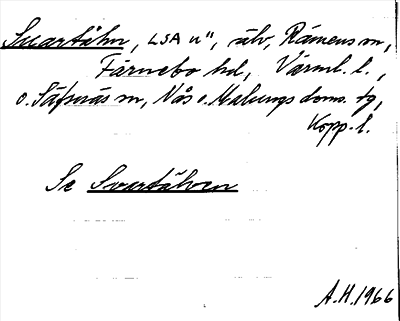 Svartåhn, LSA n", älv, Rämens m,
Färnebo hd, Värml. l.,
o. Säfsnäs m, Nås o. Malungs doms. tg,
Kopp. l.
Se Svartälven
A.H. 1966